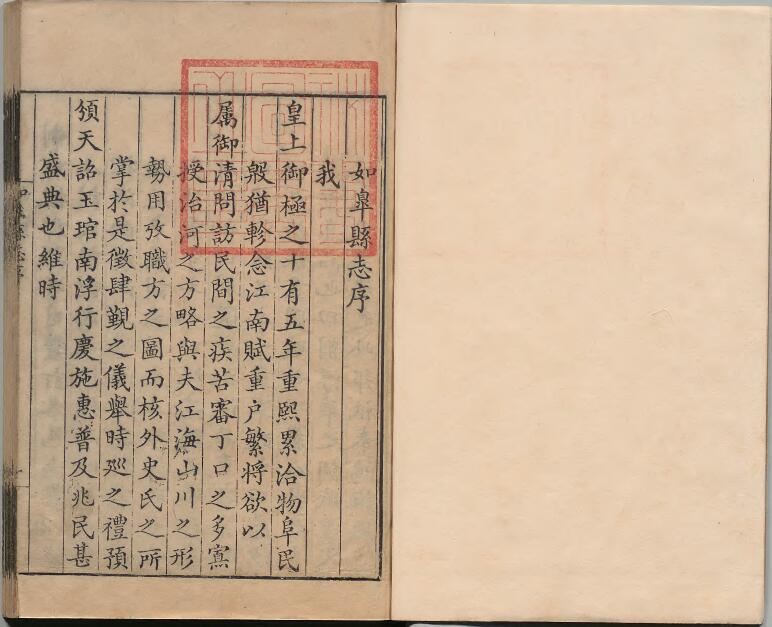 如臯縣志序
我
皇上御極之十有五年重熙累洽物阜民
殷猶軫念江南賦重户繁將欲以
属御清問訪民間之疾苦審丁口之多寡
授治河之方略與夫江海山川之形
勢用攷職方之圖而核外史氏之所
掌於是徵肆覲之儀舉時廵之禮預
頒天詔玉琯南浮行慶施惠普及兆民甚
盛典也維時